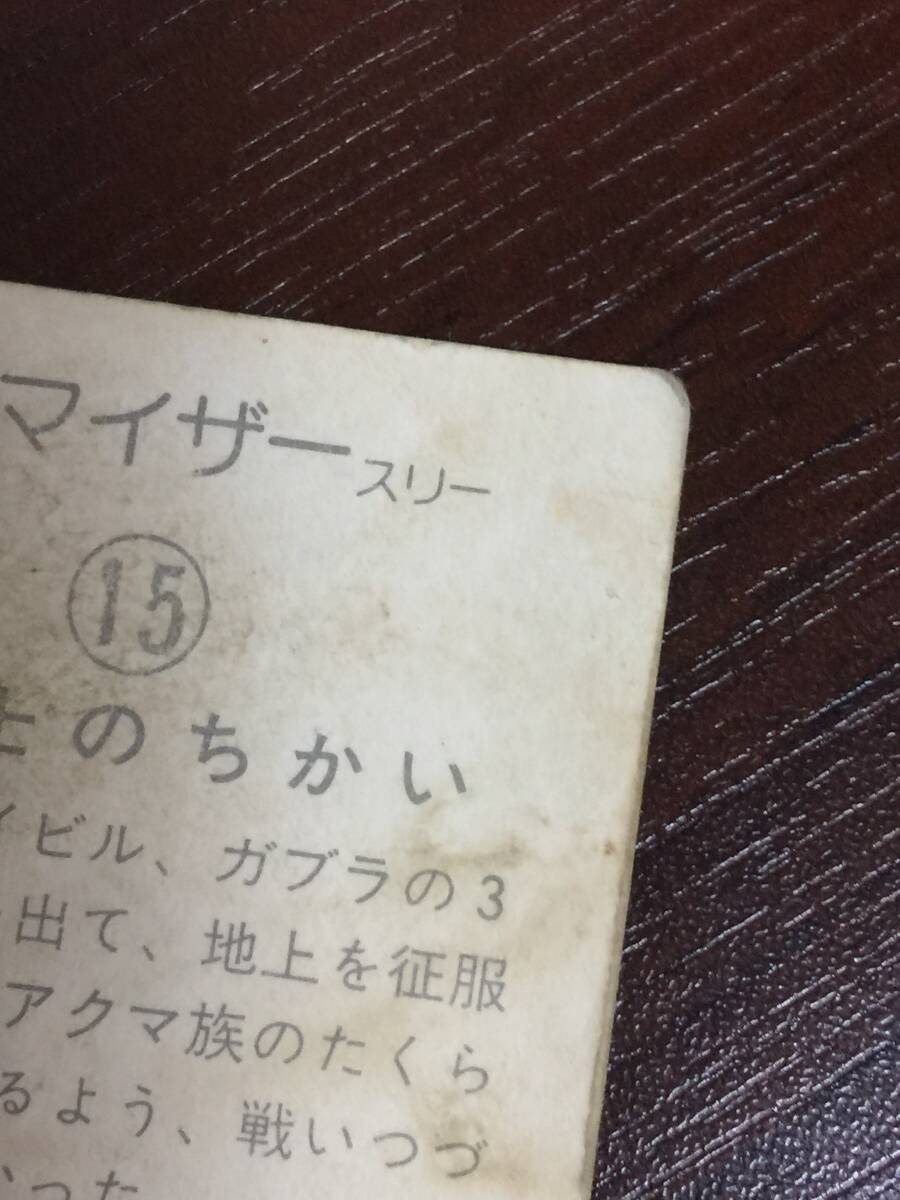 マイザー スリー
15
士のちかい
イビル、ガブラの3
出て、地上を征服
アクマ族のたくら
るよう、戦いつづ
った